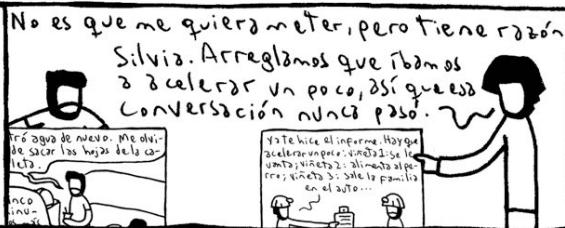 No es que me quiera meter, pero tiene razón
Silvia. Arreglamos que íbamos
a acelerar un poco, así que esa
conversación nunca pasó.
tró agua de nuevo. Me olvi-
de sacar las hojas de la ca-
leta.
inco
inu-
os más
Ya te hice el informe. Hay que
acelerar un poco: viñeta 1: se le-
vanta; viñeta 2: alimenta al pe-
rro; viñeta 3: sale la familia
en el auto...